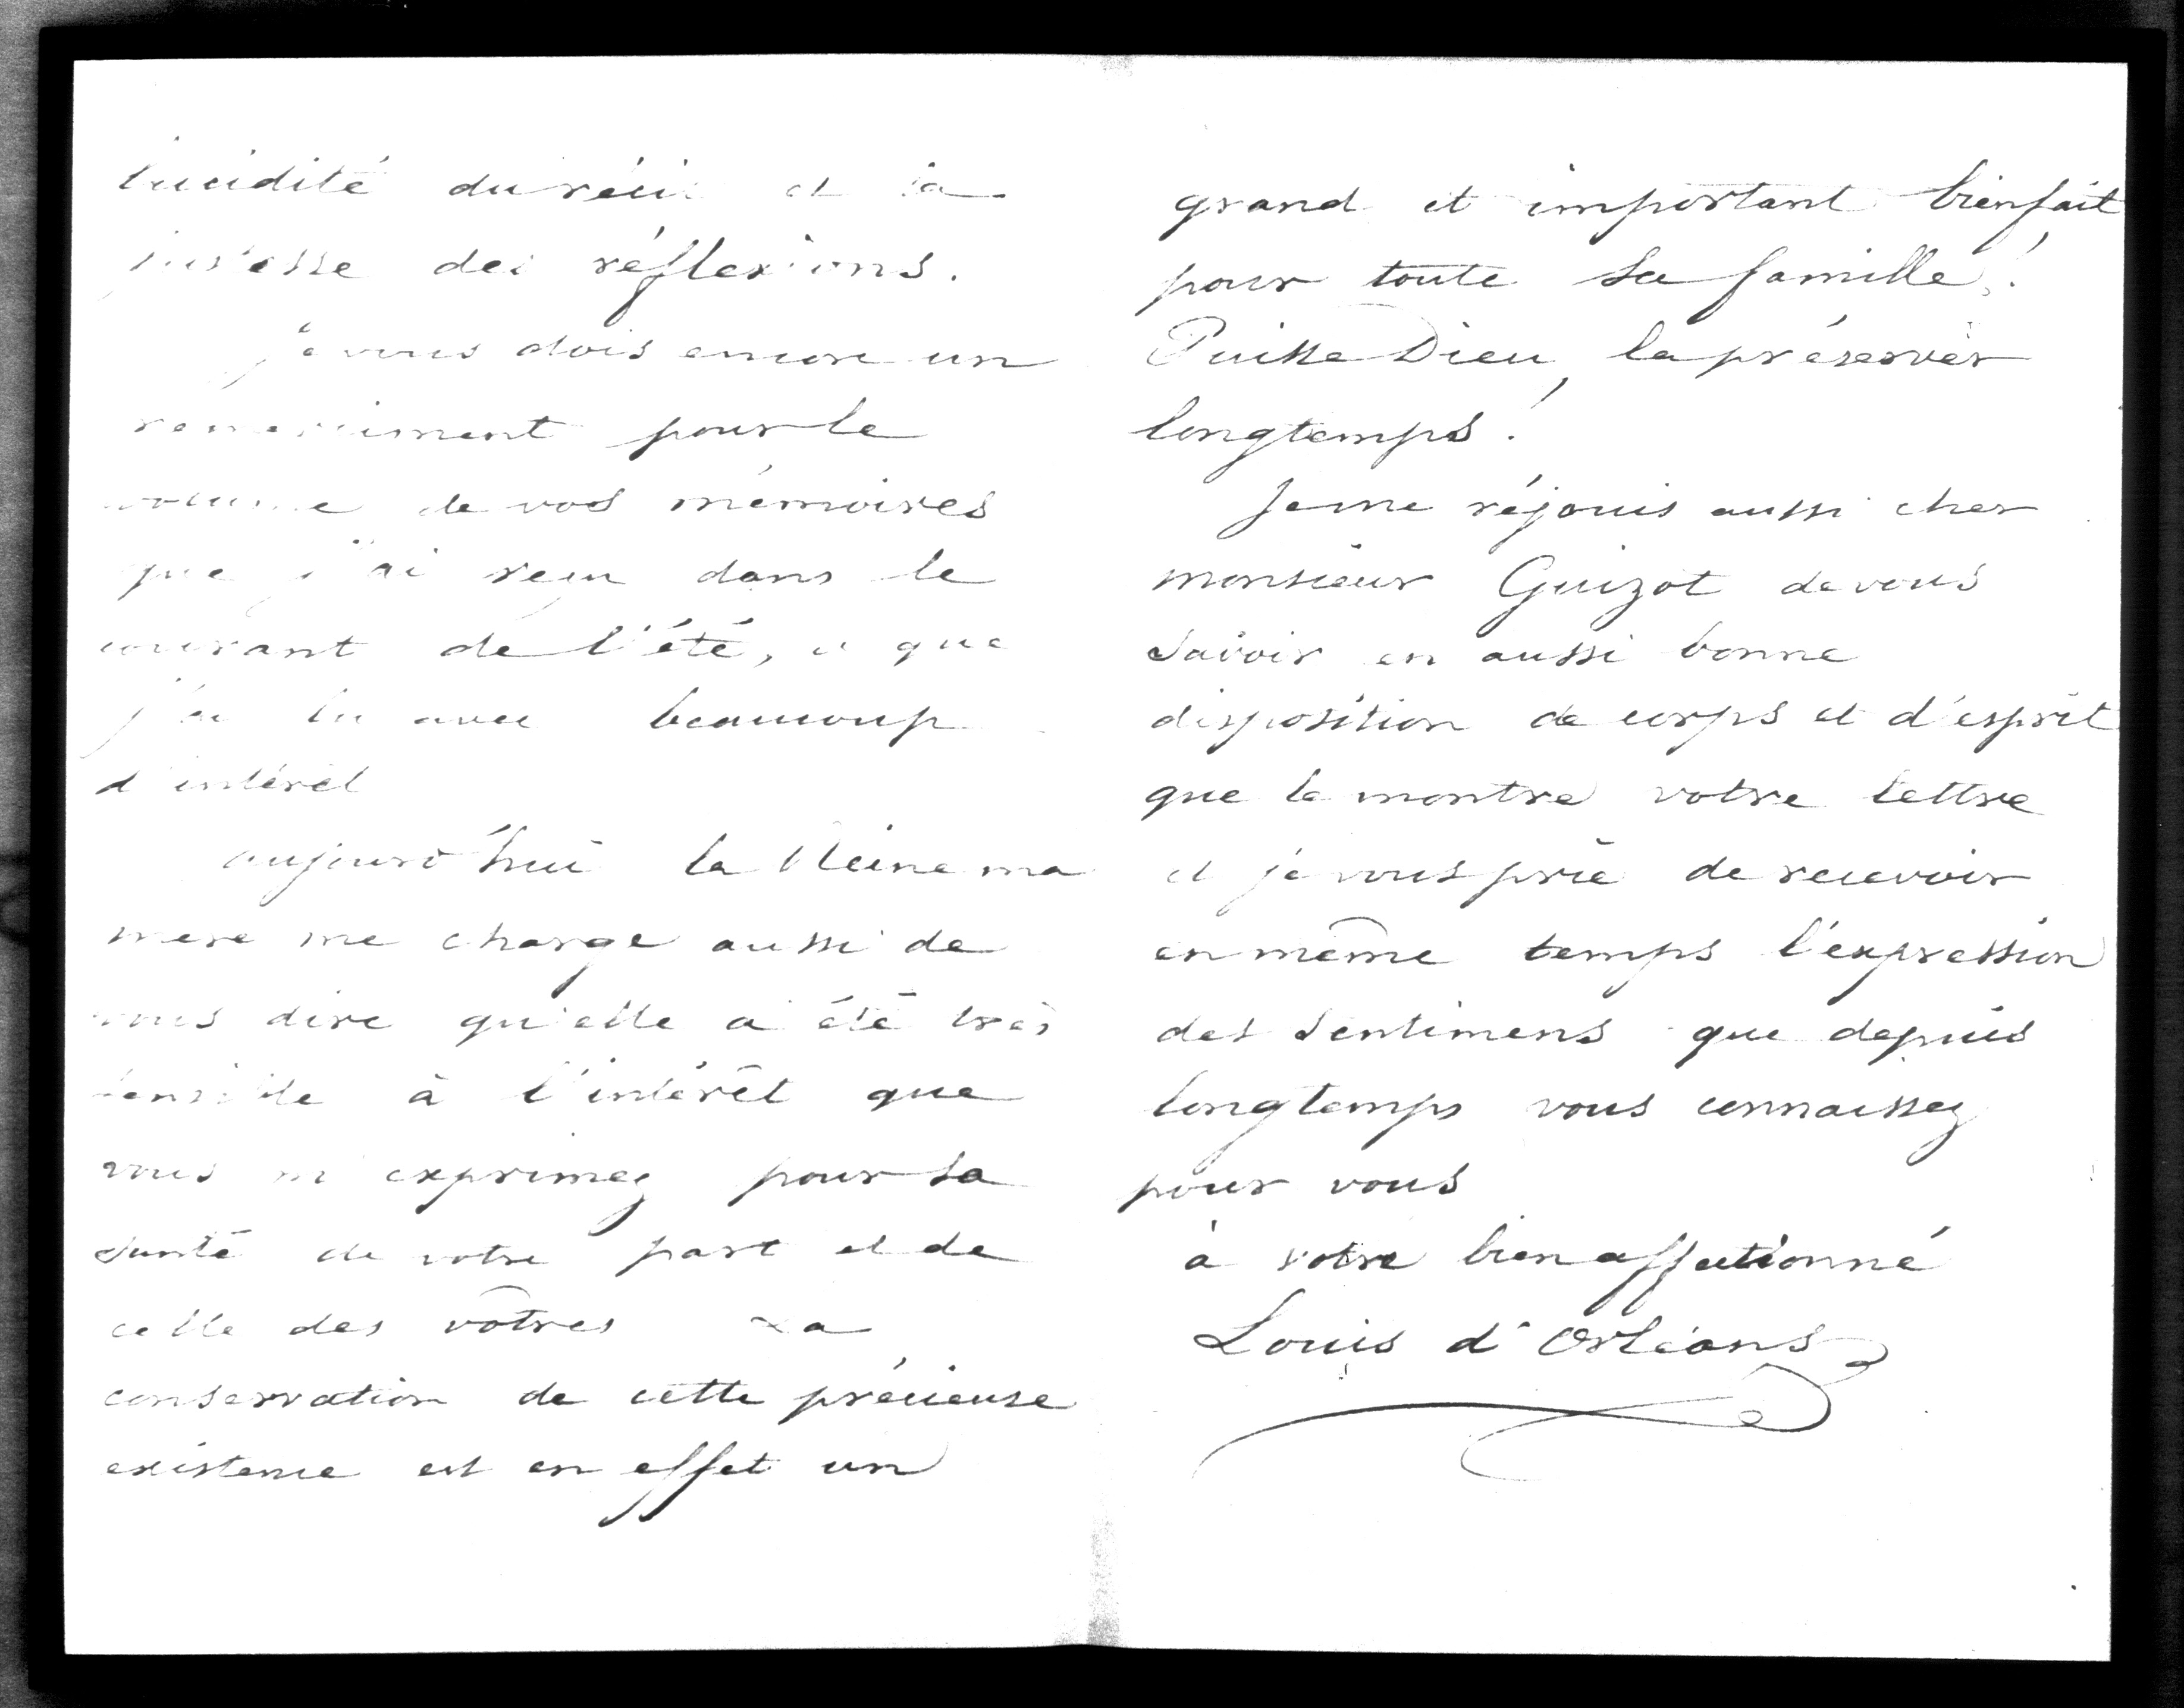 lucidité du récit et la
justesse des réflexions.
je vous dois encore un
remerciment pour le
volume de vos mémoires
que j'ai reçu dans le
courant de l'été, et que
j'ai lu avec beaucoup
d'intérêt
aujourd'hui la Reine ma
mere me charge aussi de
vous dire qu'elle a été très
sensible à l'intérêt que
vous m'exprimez pour sa
santé de votre part et de
celle des vôtres La
conservation de cette précieuse
existence est en effet un
grand et important bienfait
pour toute sa famille!
Puisse Dieu la préserver
longtemps!
Je me réjouis aussi cher
monsieur Guizot de vous
savoir en aussi bonne
disposition de corps et d'esprit
que le montre votre lettre
et je vous prie de recevoir
en même temps l'expression
des sentimens que depuis
longtemps vous connaissez
pour vous
à votre bien affectionné
Louis d'Orléans